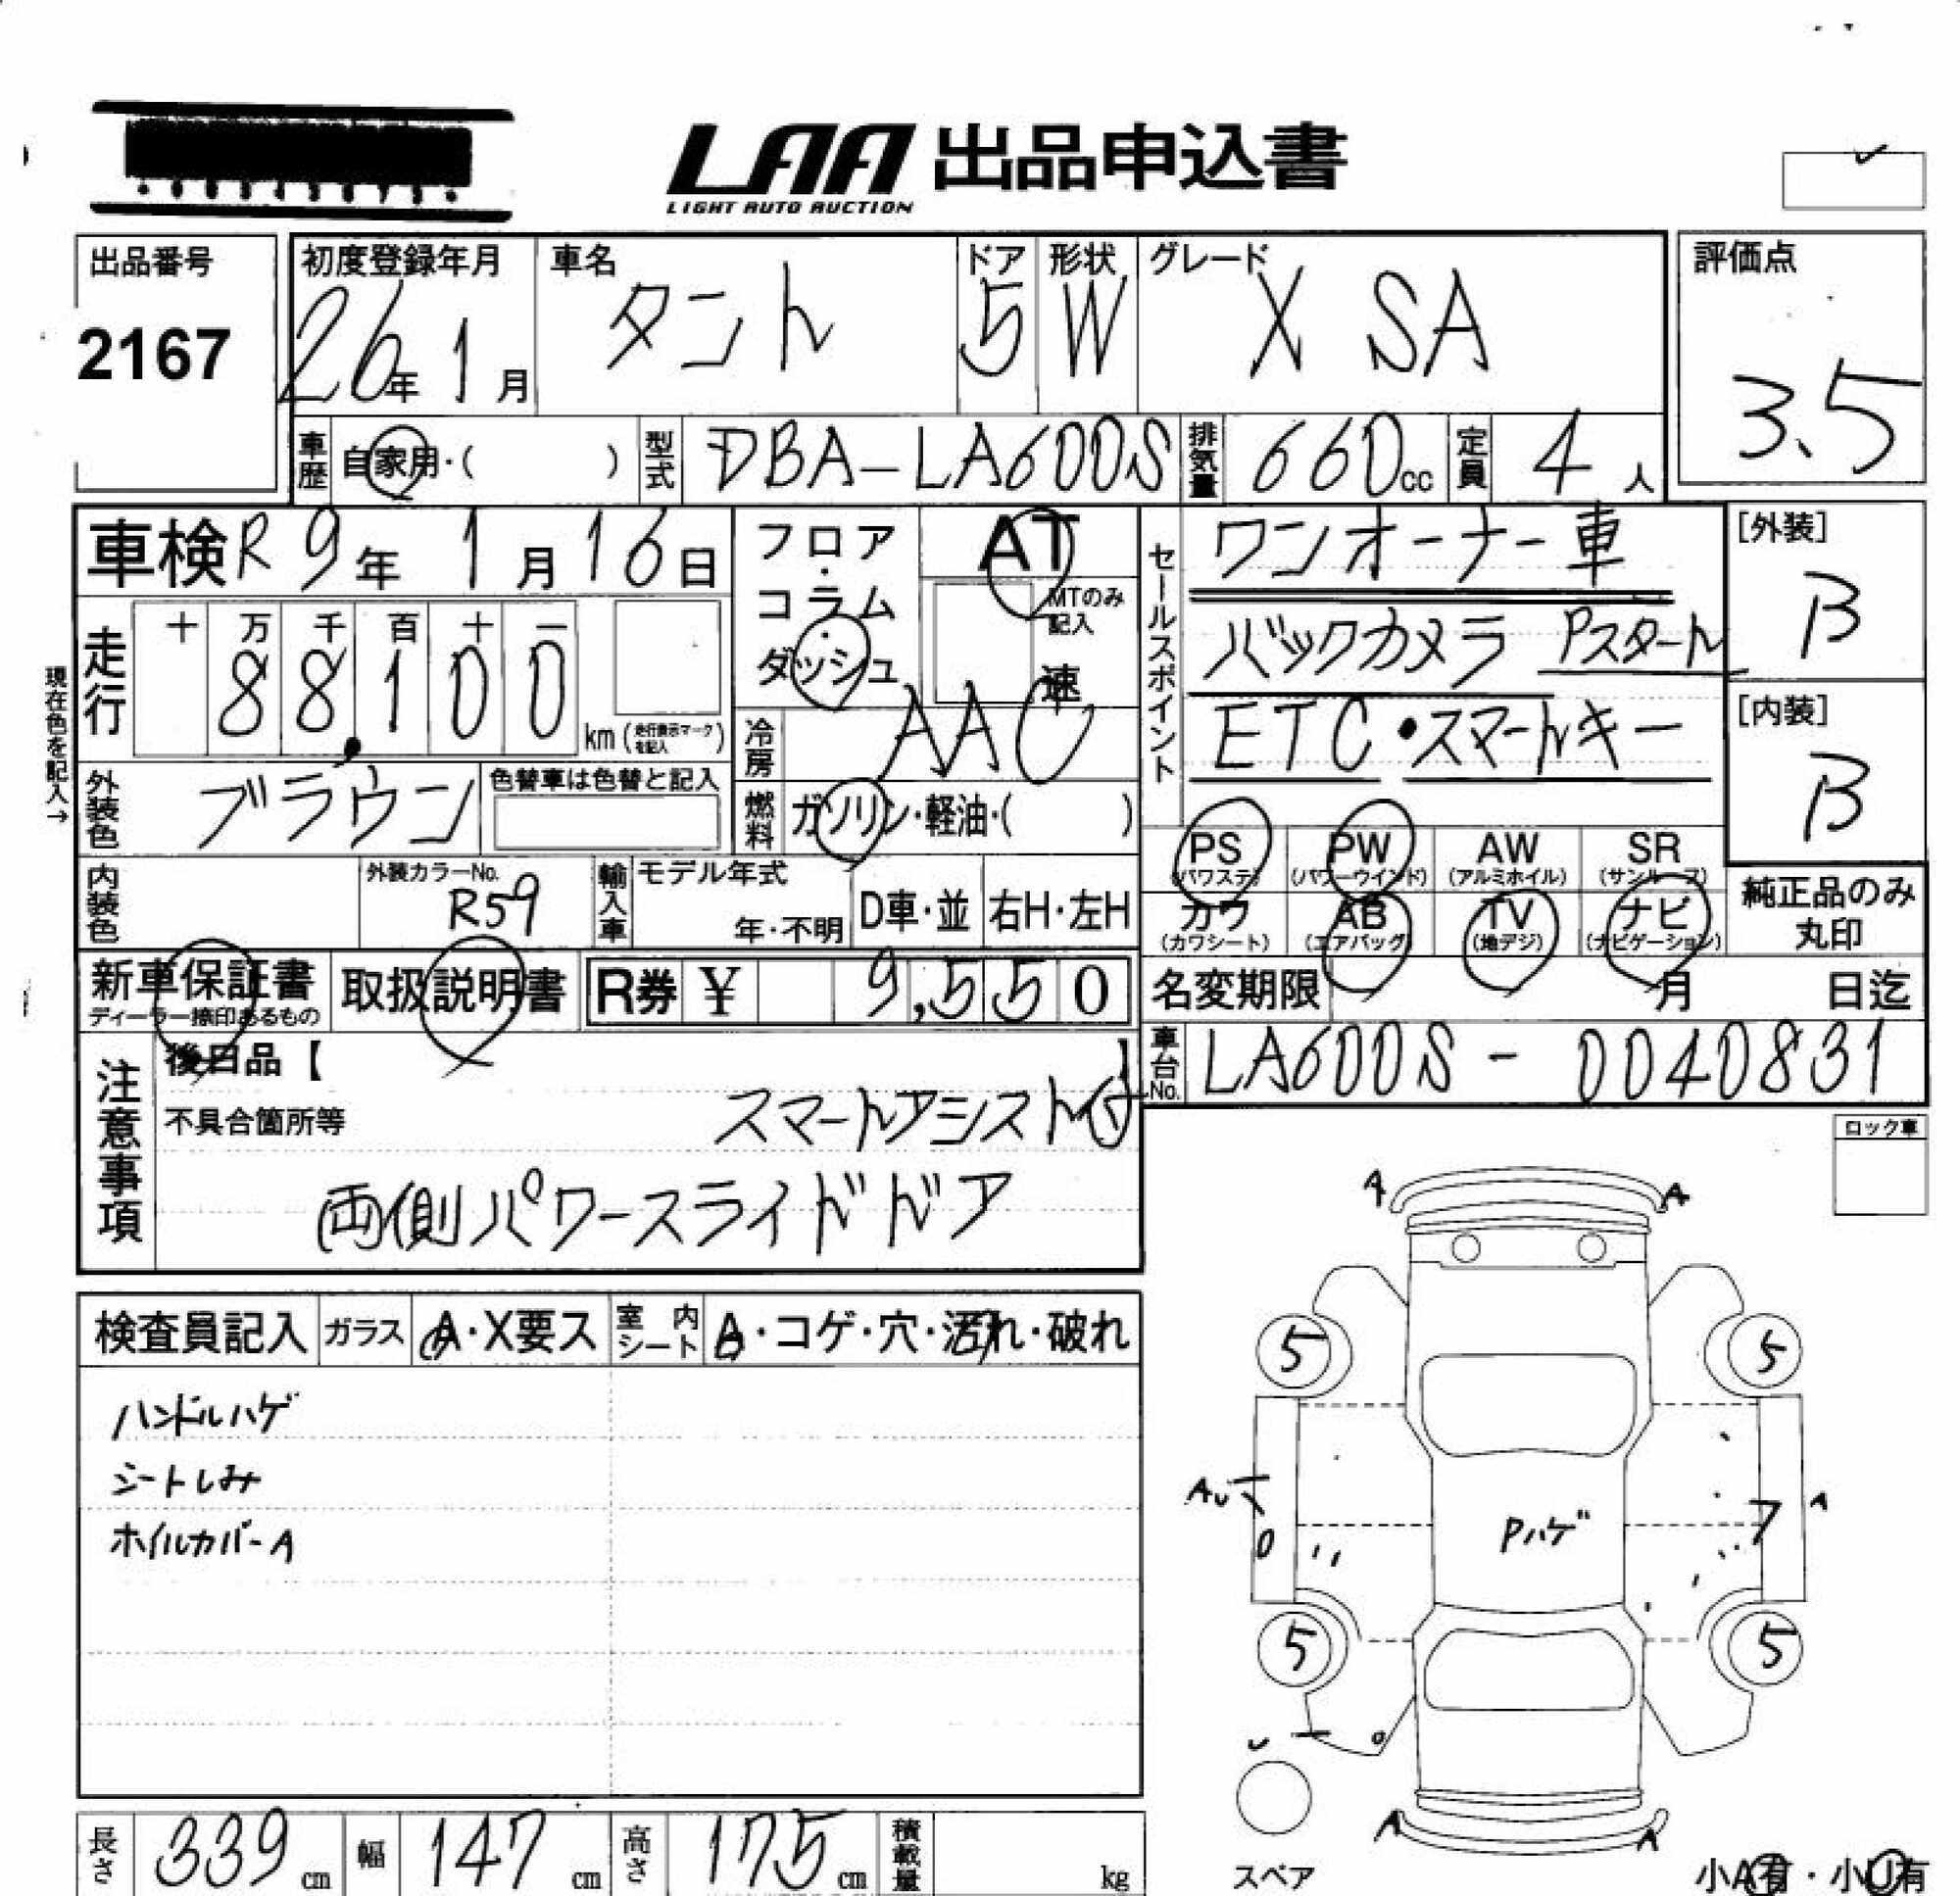 LAA 出品申込書
LIGHT AUTO AUCTION
出品番号
2167
初度登録年月
26年 1月
車名
タント
ドア
5
形状
W
グレード
X SA
評価点
3.5
車歴 自家用・( )
型式 DBA-LA600S
排気量 660cc
定員 4人
車検 R9年 1月 16日
フロア・コラム・ダッシュ
AT
MTのみ記入
速
セールスポイント
ワンオーナー車
バックカメラ Pスタート
ETC・スマートキー
[外装]
B
[内装]
B
現在色を記入→
走行
十 万 千 百 十 一
88,100
km (走行表示マークを記入)
冷房 AAC
燃料 ガソリン・軽油・( )
外装色 ブラウン
色替車は色替と記入
内装色
外装カラーNo.
R59
輸入車
モデル年式
年・不明
D車・並
右H・左H
PS (パワステ)
PW (パワーウインド)
AW (アルミホイル)
SR (サンルーフ)
カワ (カワシート)
AB (エアバッグ)
TV (地デジ)
ナビ (ナビゲーション)
純正品のみ丸印
新車保証書
ディーラー捺印あるもの
取扱説明書
R券 ¥ 9,550
名変期限 月 日迄
車台No. LA600S - 0040831
注意事項
後日品【 】
不具合箇所等
スマートアシスト付
両側パワースライドドア
ロック車
検査員記入
ガラス A・X要ス
室内シート A・コゲ・穴・汚れ・破れ
ハンドルハゲ
シートしみ
ホイルカバーA
A A
5 5
AU
A
Pハゲ
5 5
U
A A
スペア
小A有・小U有
長さ 339cm
幅 147cm
高さ 175cm
積載量 kg